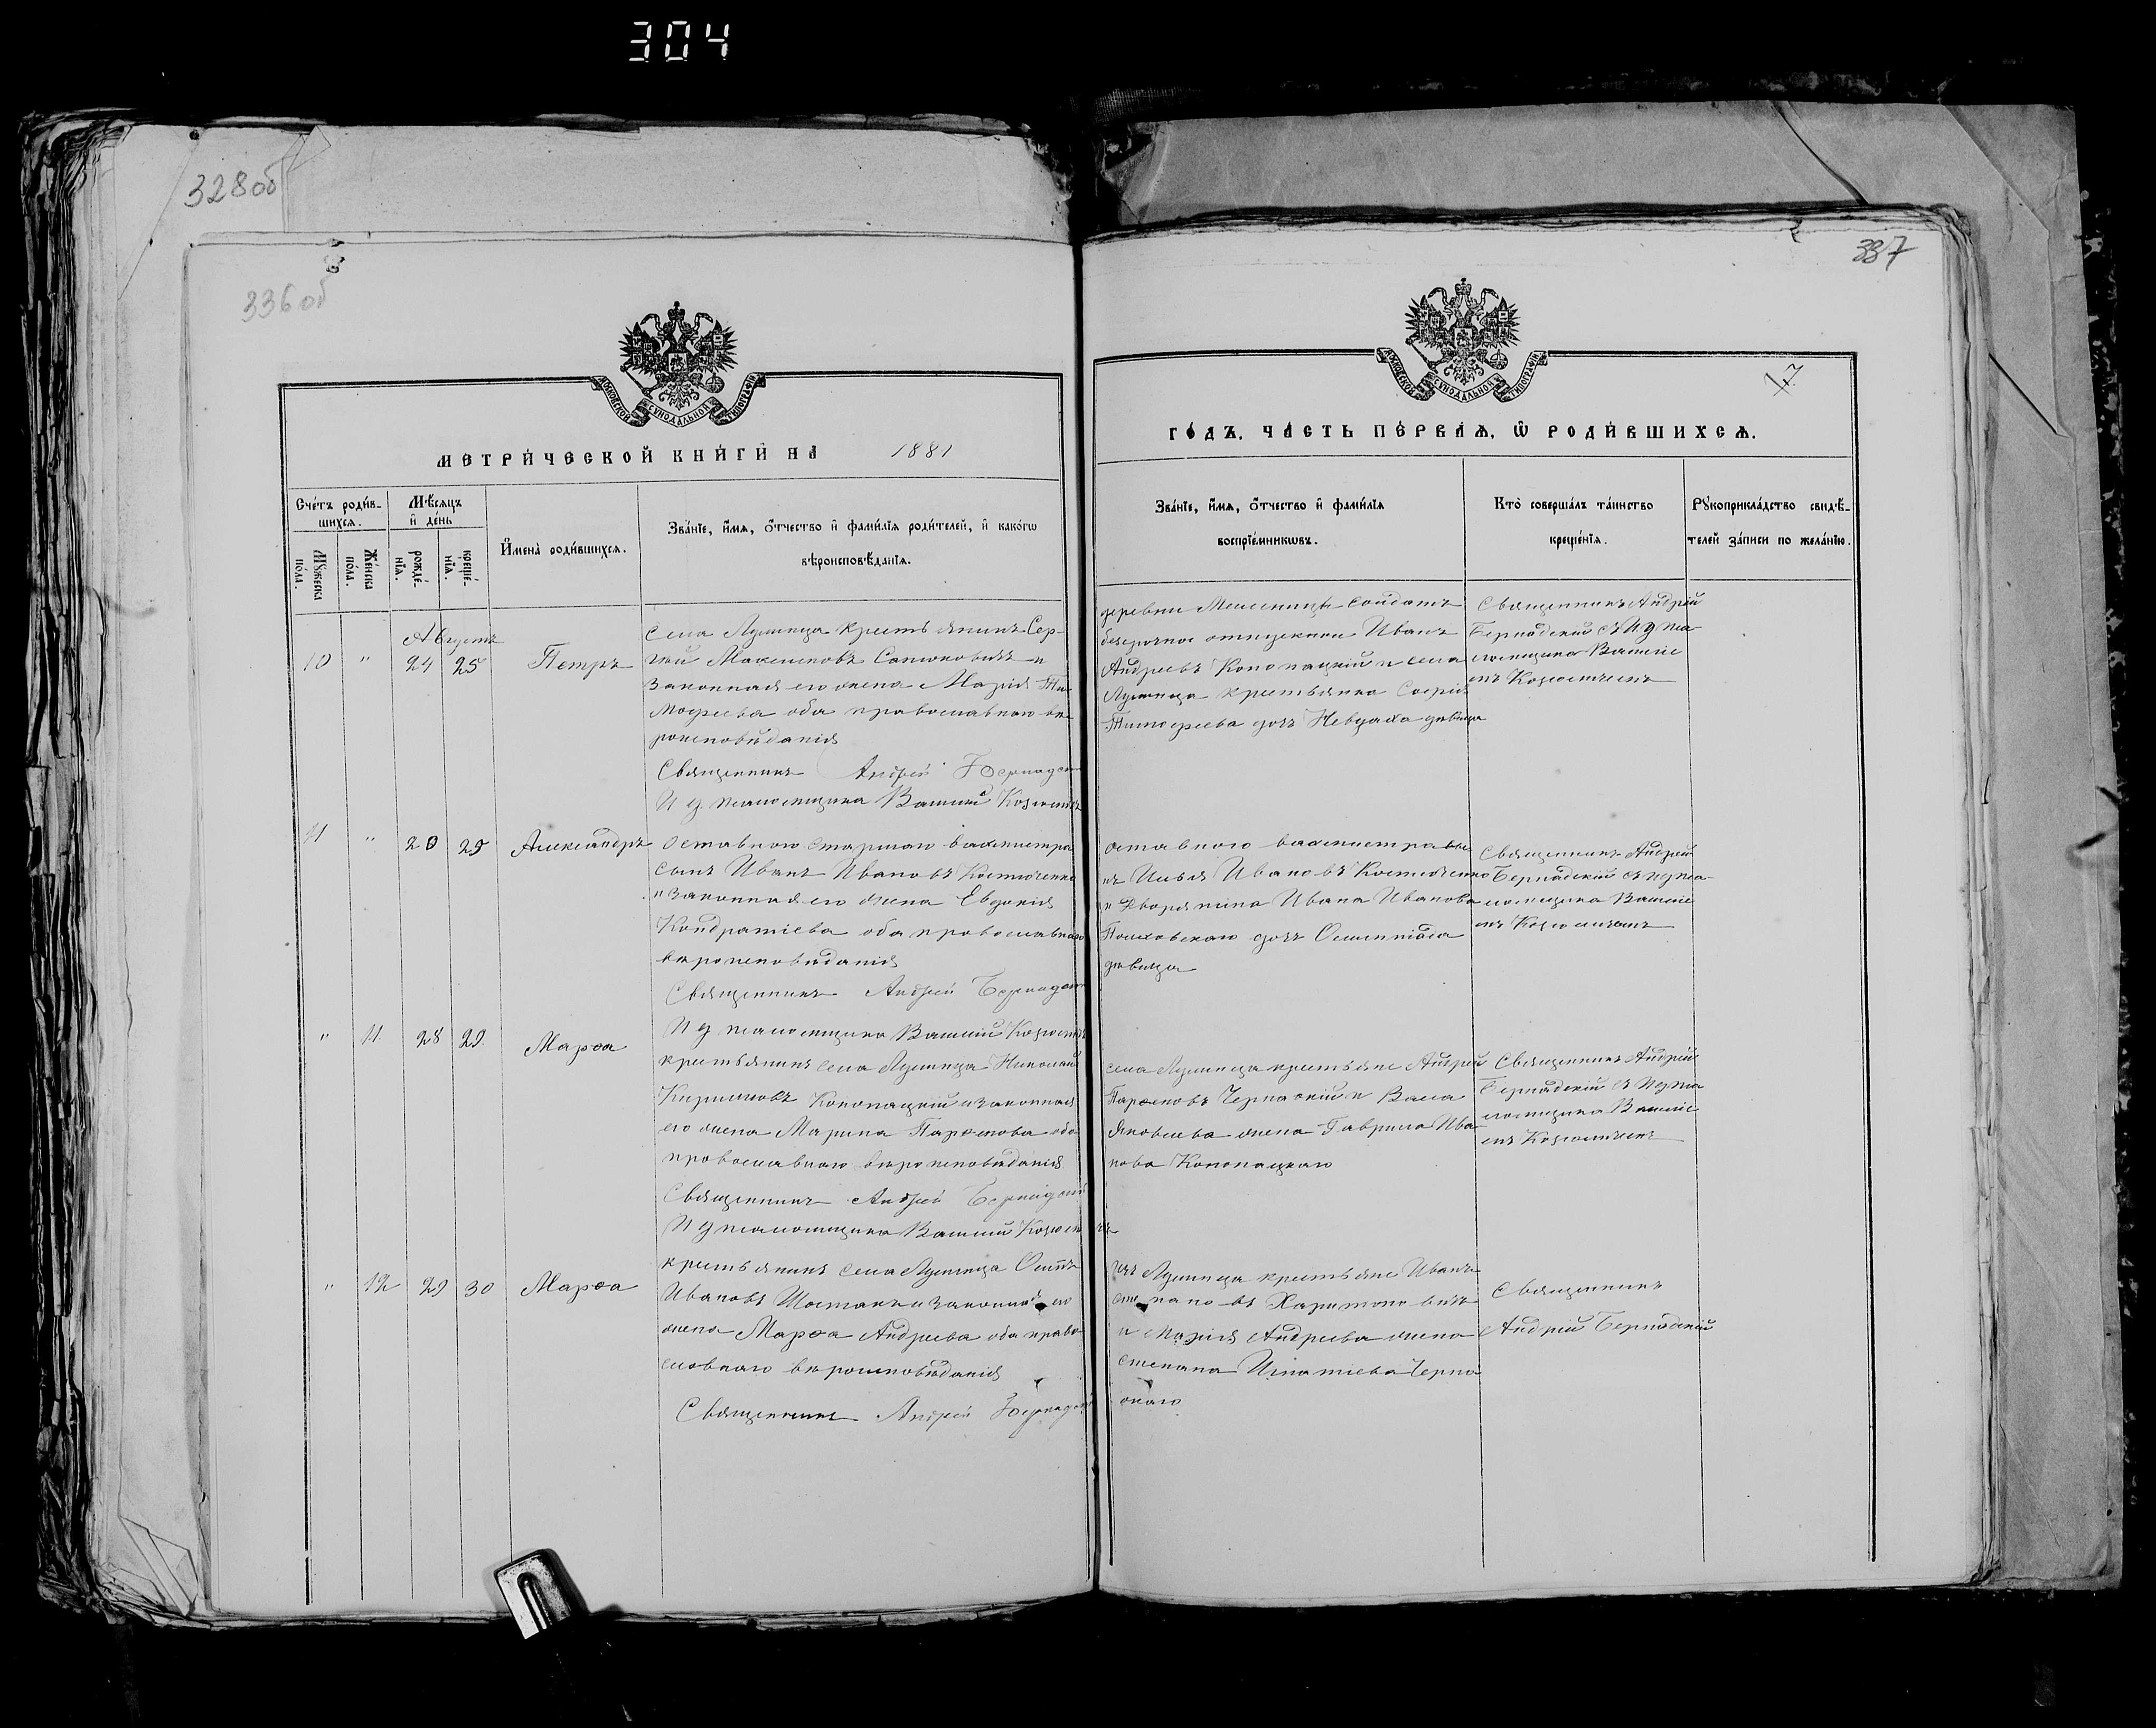 304
328об
336об
337
17.
МОСКОВСКОЙ СѴНОДАЛЬНОЙ ТИПОГРАФІИ
МОСКОВСКОЙ СѴНОДАЛЬНОЙ ТИПОГРАФІИ
МЕТРИ́ЧЕСКОЙ КНИ́ГИ НА 1881
ГО́ДЪ. ЧА́СТЬ ПЕ́РВАѦ, Ѡ РОДИ́ВШИХСѦ.
Сче́тъ роди́в-
шихсѧ.
Мꙋ́жеска по́ла.
Же́нска по́ла.
Мѣ́сѧцъ
и҆ де́нь
рожде́-нїѧ.
креще́-нїѧ.
И҆мена̀ роди́вшихсѧ.
Зва́нїе, и҆́мѧ, ѻ҆́тчество и҆ фами́лїѧ роди́телей, и҆ како́гѡ
вѣроисповѣ́данїѧ.
Зва́нїе, и҆́мѧ, ѻ҆́тчество и҆ фами́лїѧ
воспрїе́мникѡвъ.
Кто̀ соверша́лъ та́инство
креще́нїѧ.
Рꙋкоприкла́дство свидѣ́-
телей за́писи по жела́нїю.
Августъ
10 " 24 25 Петръ
села Лушница крестьянинъ Сер-
гій Максимовъ Сапоковичъ и
законная его жена Марія Ти-
мофеева оба православнаго вѣ-
роисповѣданія
Священникъ Андрей Бернадск
И д псаломщика Василій
деревни солдатъ
безсрочно отпускной Иванъ
Андреевъ Конопацкій и села
Лушница крестьянка Софія
Тимофеева дочь Невдаха дѣвица
Священникъ Андрей
Бернадскій съ И д пса-
ломщика Василіе
мъ
11 " 20 29 Александръ
Оставного старшаго вахмистра
сынъ Иванъ Ивановъ Костюченко
и законная его жена Евдокія
Кондратіева оба православнаго
вѣроисповѣданія
Священникъ Андрей Бернадск
И д псаломщика Василій
оставного вахмистра сы
нъ Илья Ивановъ Костюченко
и Дворянина Ивана Иванова
дочь Олимпіада
дѣвица
Священникъ Андрей
Бернадскій съ И д пса-
ломщика Василіе
мъ
" 11. 28 29. Марѳа
крестьянинъ села Лушница Николай
Кириловъ Конопацкій и законная
его жена Марина Парѳенова оба
православнаго вѣроисповѣданія
Священникъ Андрей Бернадскій
И д псаломщика Василій
села Лушница крестьяне Андрей
Парѳеновъ Чернаскій и Васа
Яковлева жена Гаврила Ива-
нова Конопацкаго
Священникъ Андрей
Бернадскій съ И д пса
ломщика Василіе
мъ
" 12 29 30 Марѳа
крестьянинъ села Лушница Осипъ
Ивановъ Шостакъ и законная его
жена Марѳа Андреева оба право-
славнаго вѣроисповѣданія
Священникъ Андрей Бернадск
Лушница крестьяне Иванъ
Степановъ Харитоновичъ
и Марія Андреева жена
Степана Игнатіева Черна
скаго
Священникъ
Андрей Бернадскій